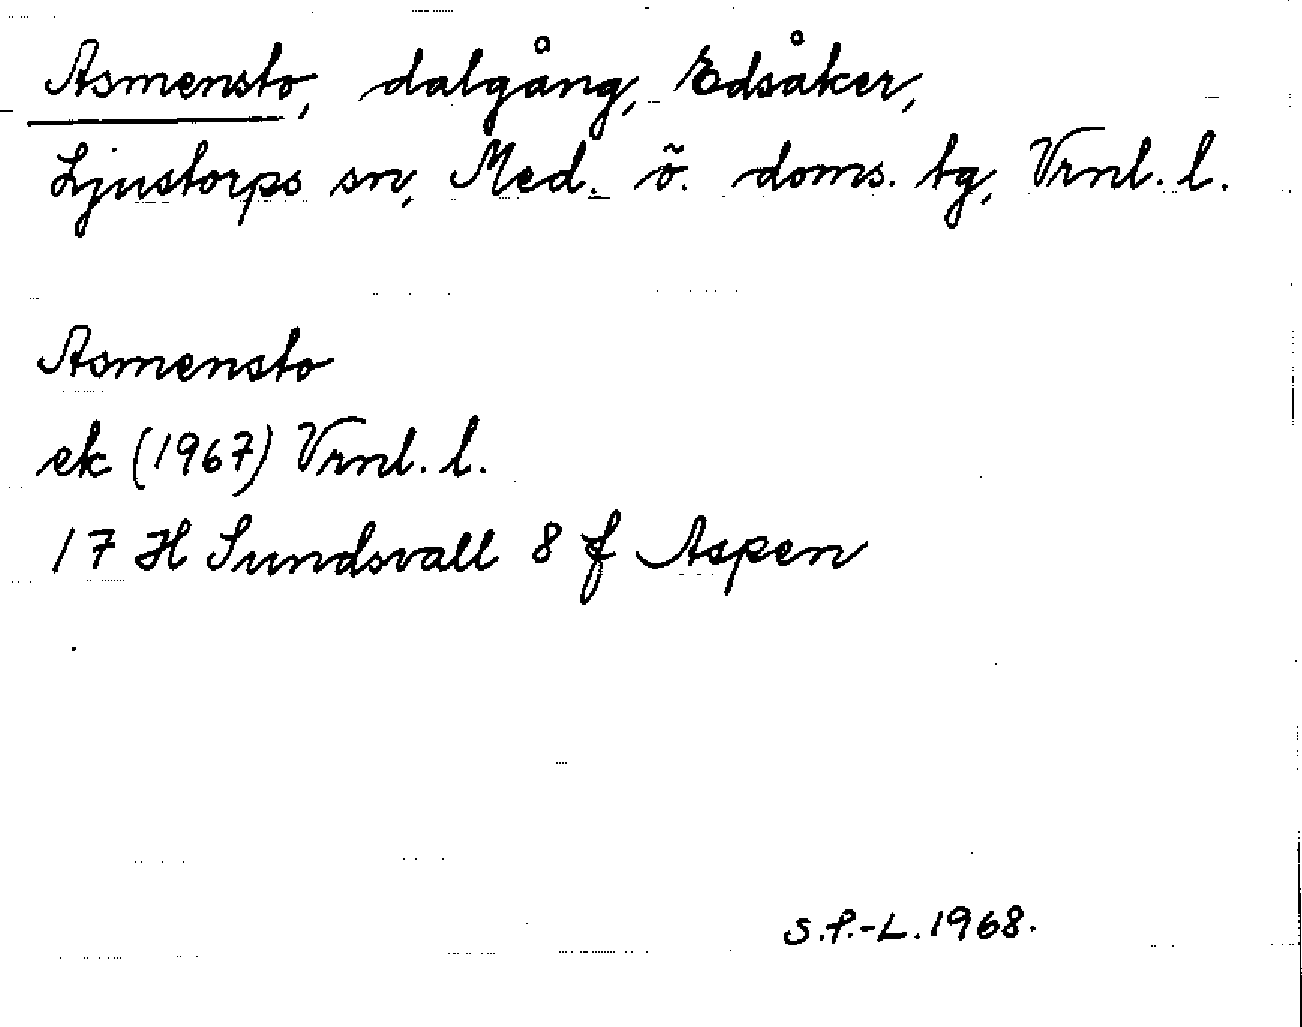 Asmensto, dalgång, Edsåker,
Ljustorps sn, Med. ö. doms. tg, Vrnl. l.
Asmensto
ek (1967) Vrnl. l.
17 H Sundsvall 8 f Aspen
S.P.-L. 1968.